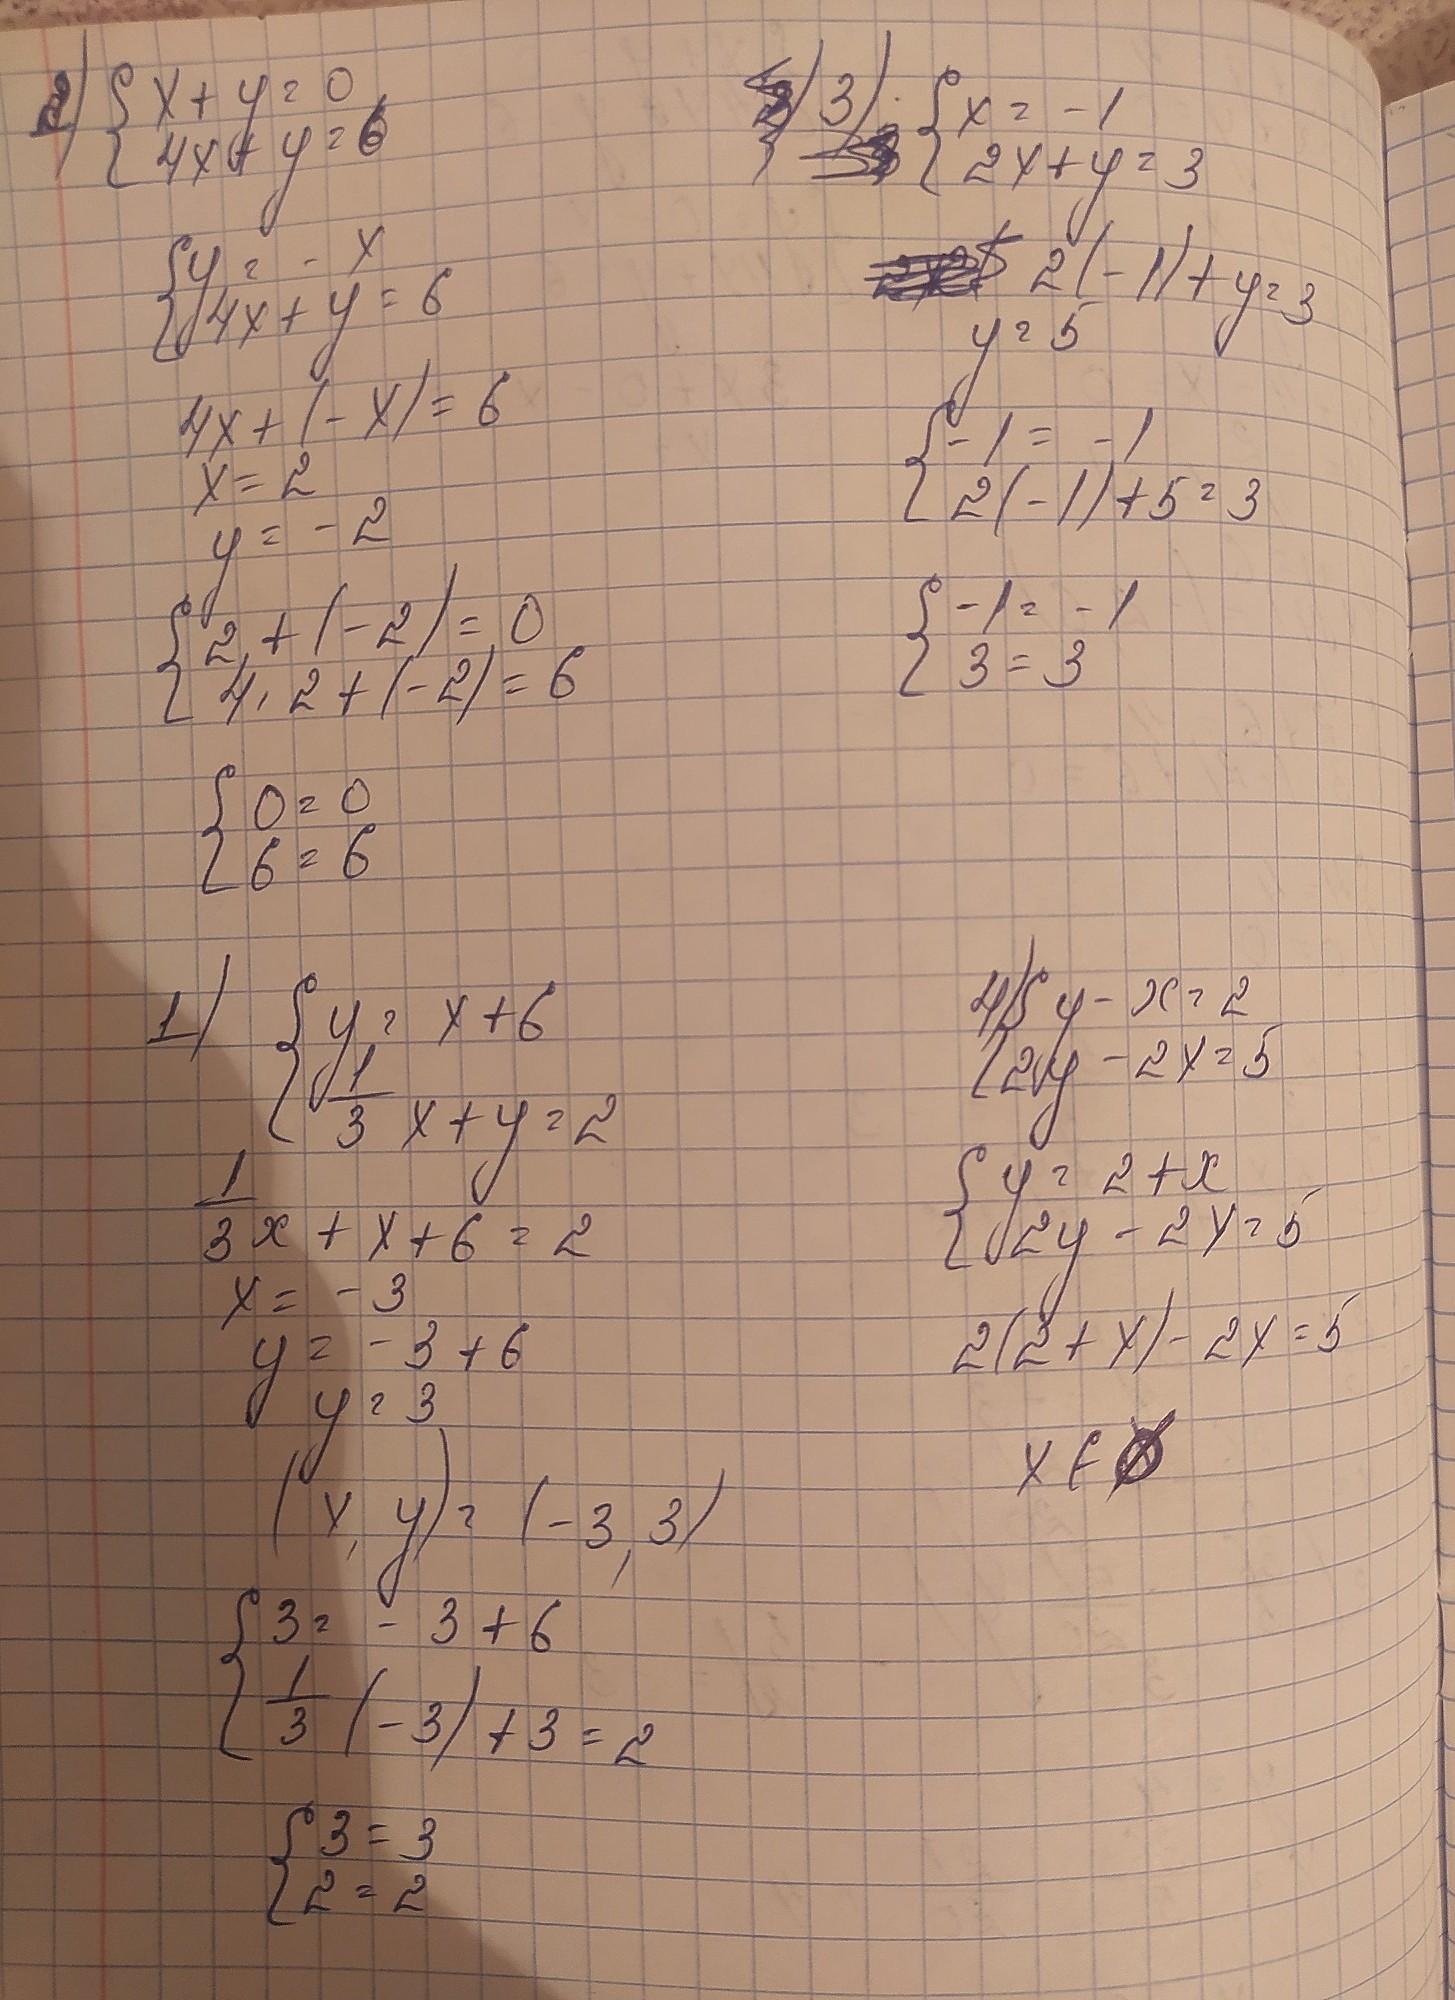 2) { x + y = 0
4x + y = 6
{ y = - x
4x + y = 6
4x + (- x) = 6
x = 2
y = - 2
{ 2 + (- 2) = 0
4 · 2 + (- 2) = 6
{ 0 = 0
6 = 6
3) { x = - 1
2x + y = 3
2(- 1) + y = 3
y = 5
{ - 1 = - 1
2(- 1) + 5 = 3
{ - 1 = - 1
3 = 3
1) { y = x + 6
1/3 x + y = 2
1/3 x + x + 6 = 2
x = - 3
y = - 3 + 6
y = 3
(x, y) = (- 3, 3)
{ 3 = - 3 + 6
1/3 (- 3) + 3 = 2
{ 3 = 3
2 = 2
4) { y - x = 2
2y - 2x = 5
{ y = 2 + x
2y - 2x = 5
2(2 + x) - 2x = 5
x ∈ Ø